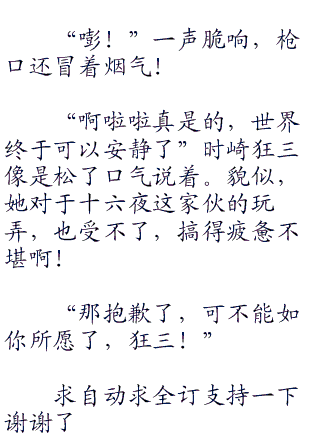 “嘭！”一声脆响，枪
口还冒着烟气！
“啊啦啦真是的，世界
终于可以安静了”时崎狂三
像是松了口气说着。貌似，
她对于十六夜这家伙的玩
弄，也受不了，搞得疲惫不
堪啊！
“那抱歉了，可不能如
你所愿了，狂三！”
求自动求全订支持一下
谢谢了